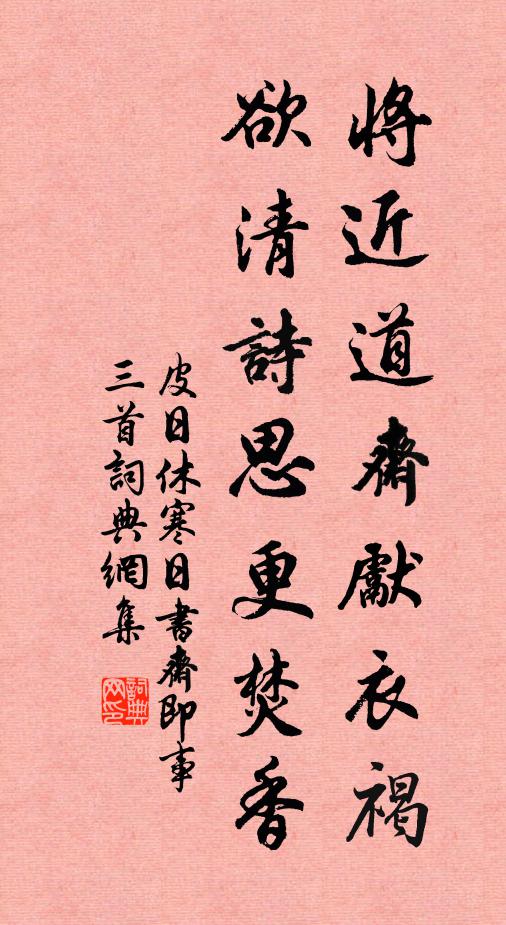 將近道齋獻衣褐
欲清詩思更焚香
皮日休寒日書齋即事
三首詞典網集
詞典
网印